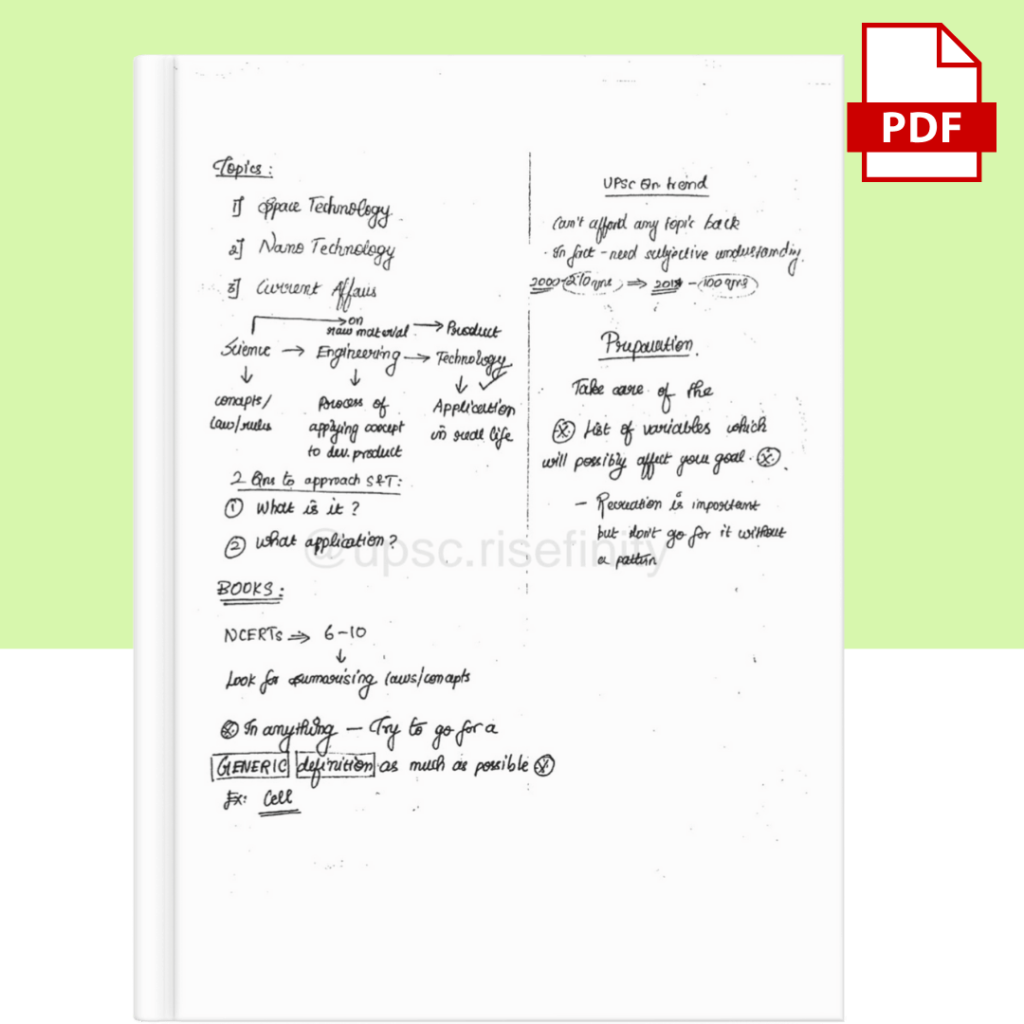 PDF
Topics :
1] Space Technology
2] Nano Technology
3] Current Affairs
on
raw material → Product
Science → Engineering → Technology
↓ ↓ ↓ ✓
concepts/ Process of Application
laws/rules applying concept in real life
to dev. product
2 Qns to approach S&T:
① What is it ?
② What application ?
BOOKS :
NCERTs ⇒ 6-10
↓
Look for summarising laws/concepts
In anything — Try to go for a
GENERIC definition as much as possible
Ex: Cell
UPSC Qn trend
Can't afford any topic back
· In fact - need subjective understanding.
2000 - 210 qns ⇒ - 100 qns
Preparation.
Take care of the
List of variables which
will possibly affect your goal.
— Recreation is important
but don't go for it without
a pattern
@upsc.risefinity